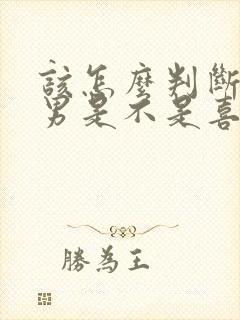 該怎麼判斷
男是不是喜
勝為王